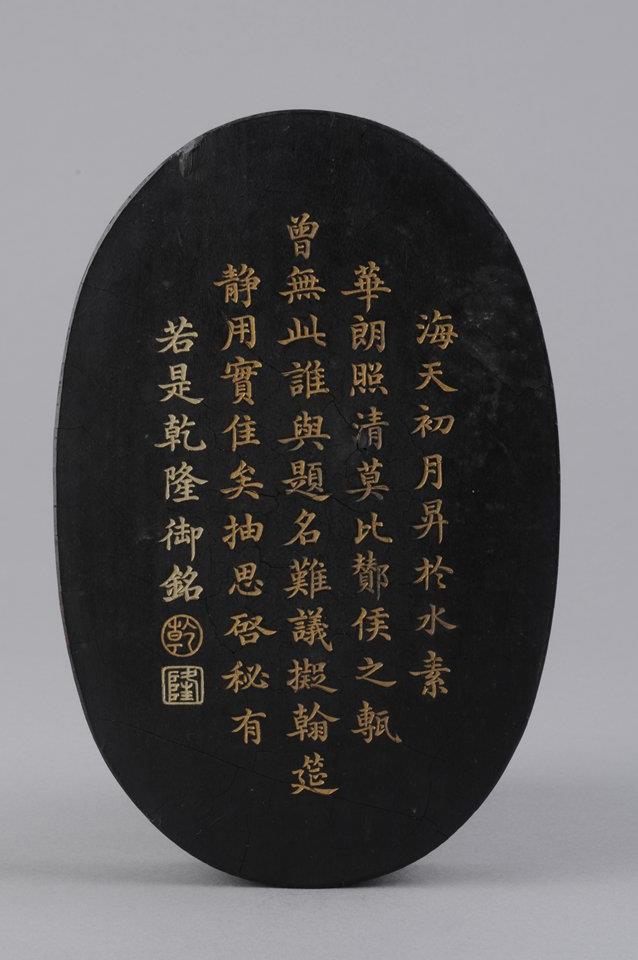 海天初月昇於水素
華朗照清莫比酇侯之甎
曾無此誰與題名難議擬翰筵
静用實佳矣抽思啓秘有
若是乾隆御銘
乾
隆